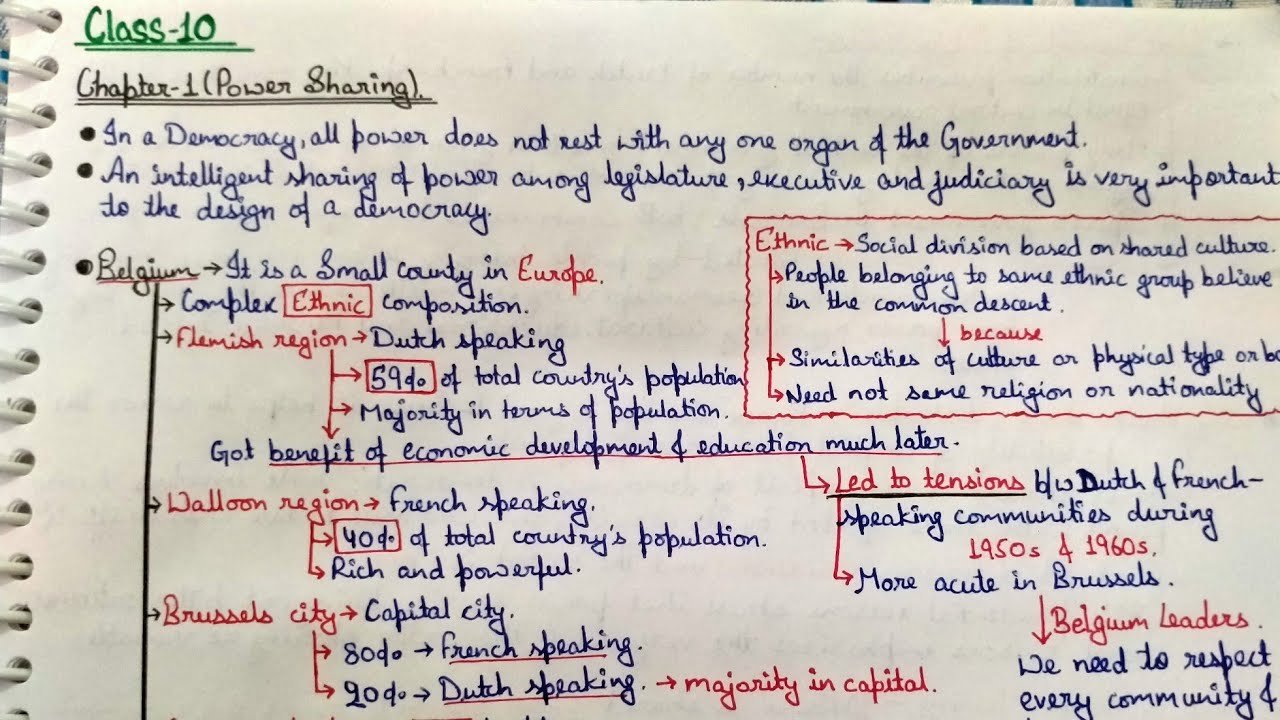 Class-10
Chapter-1 (Power Sharing).
• In a Democracy, all power does not rest with any one organ of the Government.
• An intelligent sharing of power among legislature, executive and judiciary is very important
to the design of a democracy.
• Belgium → It is a Small county in Europe.
→ Complex Ethnic composition.
→ Flemish region → Dutch speaking
→ 59% of total country's population
→ Majority in terms of population.
Got benefit of economic development & education much later.
Ethnic → Social division based on shared culture.
→ People belonging to same ethnic group believe
in the common descent.
↓ because
→ Similarities of culture or physical type or
→ Need not same religion or nationality
→ Led to tensions b/w Dutch & French-
speaking communities during
1950s & 1960s.
→ More acute in Brussels.
↓ Belgium Leaders.
We need to respect
every community &
→ Walloon region → French speaking.
→ 40% of total country's population.
→ Rich and powerful.
→ Brussels city → Capital city.
→ 80% → French speaking.
→ 20% → Dutch speaking. → majority in capital.